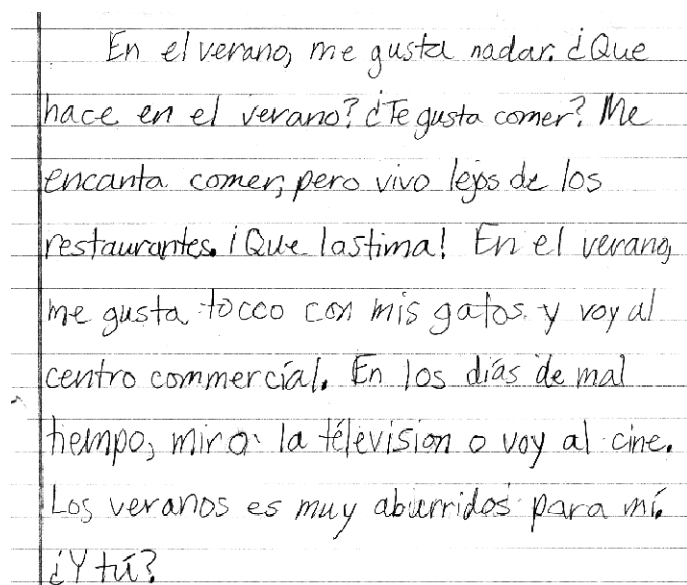 En el verano, me gusta nadar. ¿Que
hace en el verano? ¿Te gusta comer? Me
encanta comer, pero vivo lejos de los
restaurantes. ¡Que lastima! En el verano,
me gusta tocco con mis gatos. y voy al
centro commercial. En los días de mal
tiempo, miro la télevision o voy al cine.
Los veranos es muy aburridos para mí.
¿Y tú?